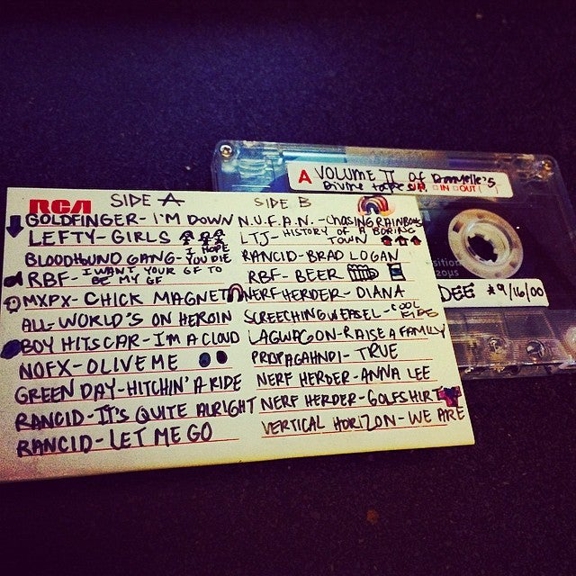 RCA SIDE A
GOLDFINGER - I'M DOWN
LEFTY - GIRLS
BLOODHOUND GANG - I HOPE YOU DIE
RBF - I WANT YOUR GF TO BE MY GF
MXPX - CHICK MAGNET
ALL - WORLD'S ON HEROIN
BOY HITS CAR - I'M A CLOUD
NOFX - OLIVE ME
GREEN DAY - HITCHIN' A RIDE
RANCID - IT'S QUITE ALRIGHT
RANCID - LET ME GO
SIDE B
N.U.F.A.N. - CHASING RAINBOWS
LTJ - HISTORY OF A BORING TOWN
RANCID - BRAD LOGAN
RBF - BEER
NERF HERDER - DIANA
SCREECHING WEASEL - COOL KIDS
LAGWAGON - RAISE A FAMILY
PROPAGAHNDI - TRUE
NERF HERDER - ANNA LEE
NERF HERDER - GOLFSHIRT
VERTICAL HORIZON - WE ARE
A VOLUME II OF Danielle's
Divine tapes IN OUT
DEE 9/16/00